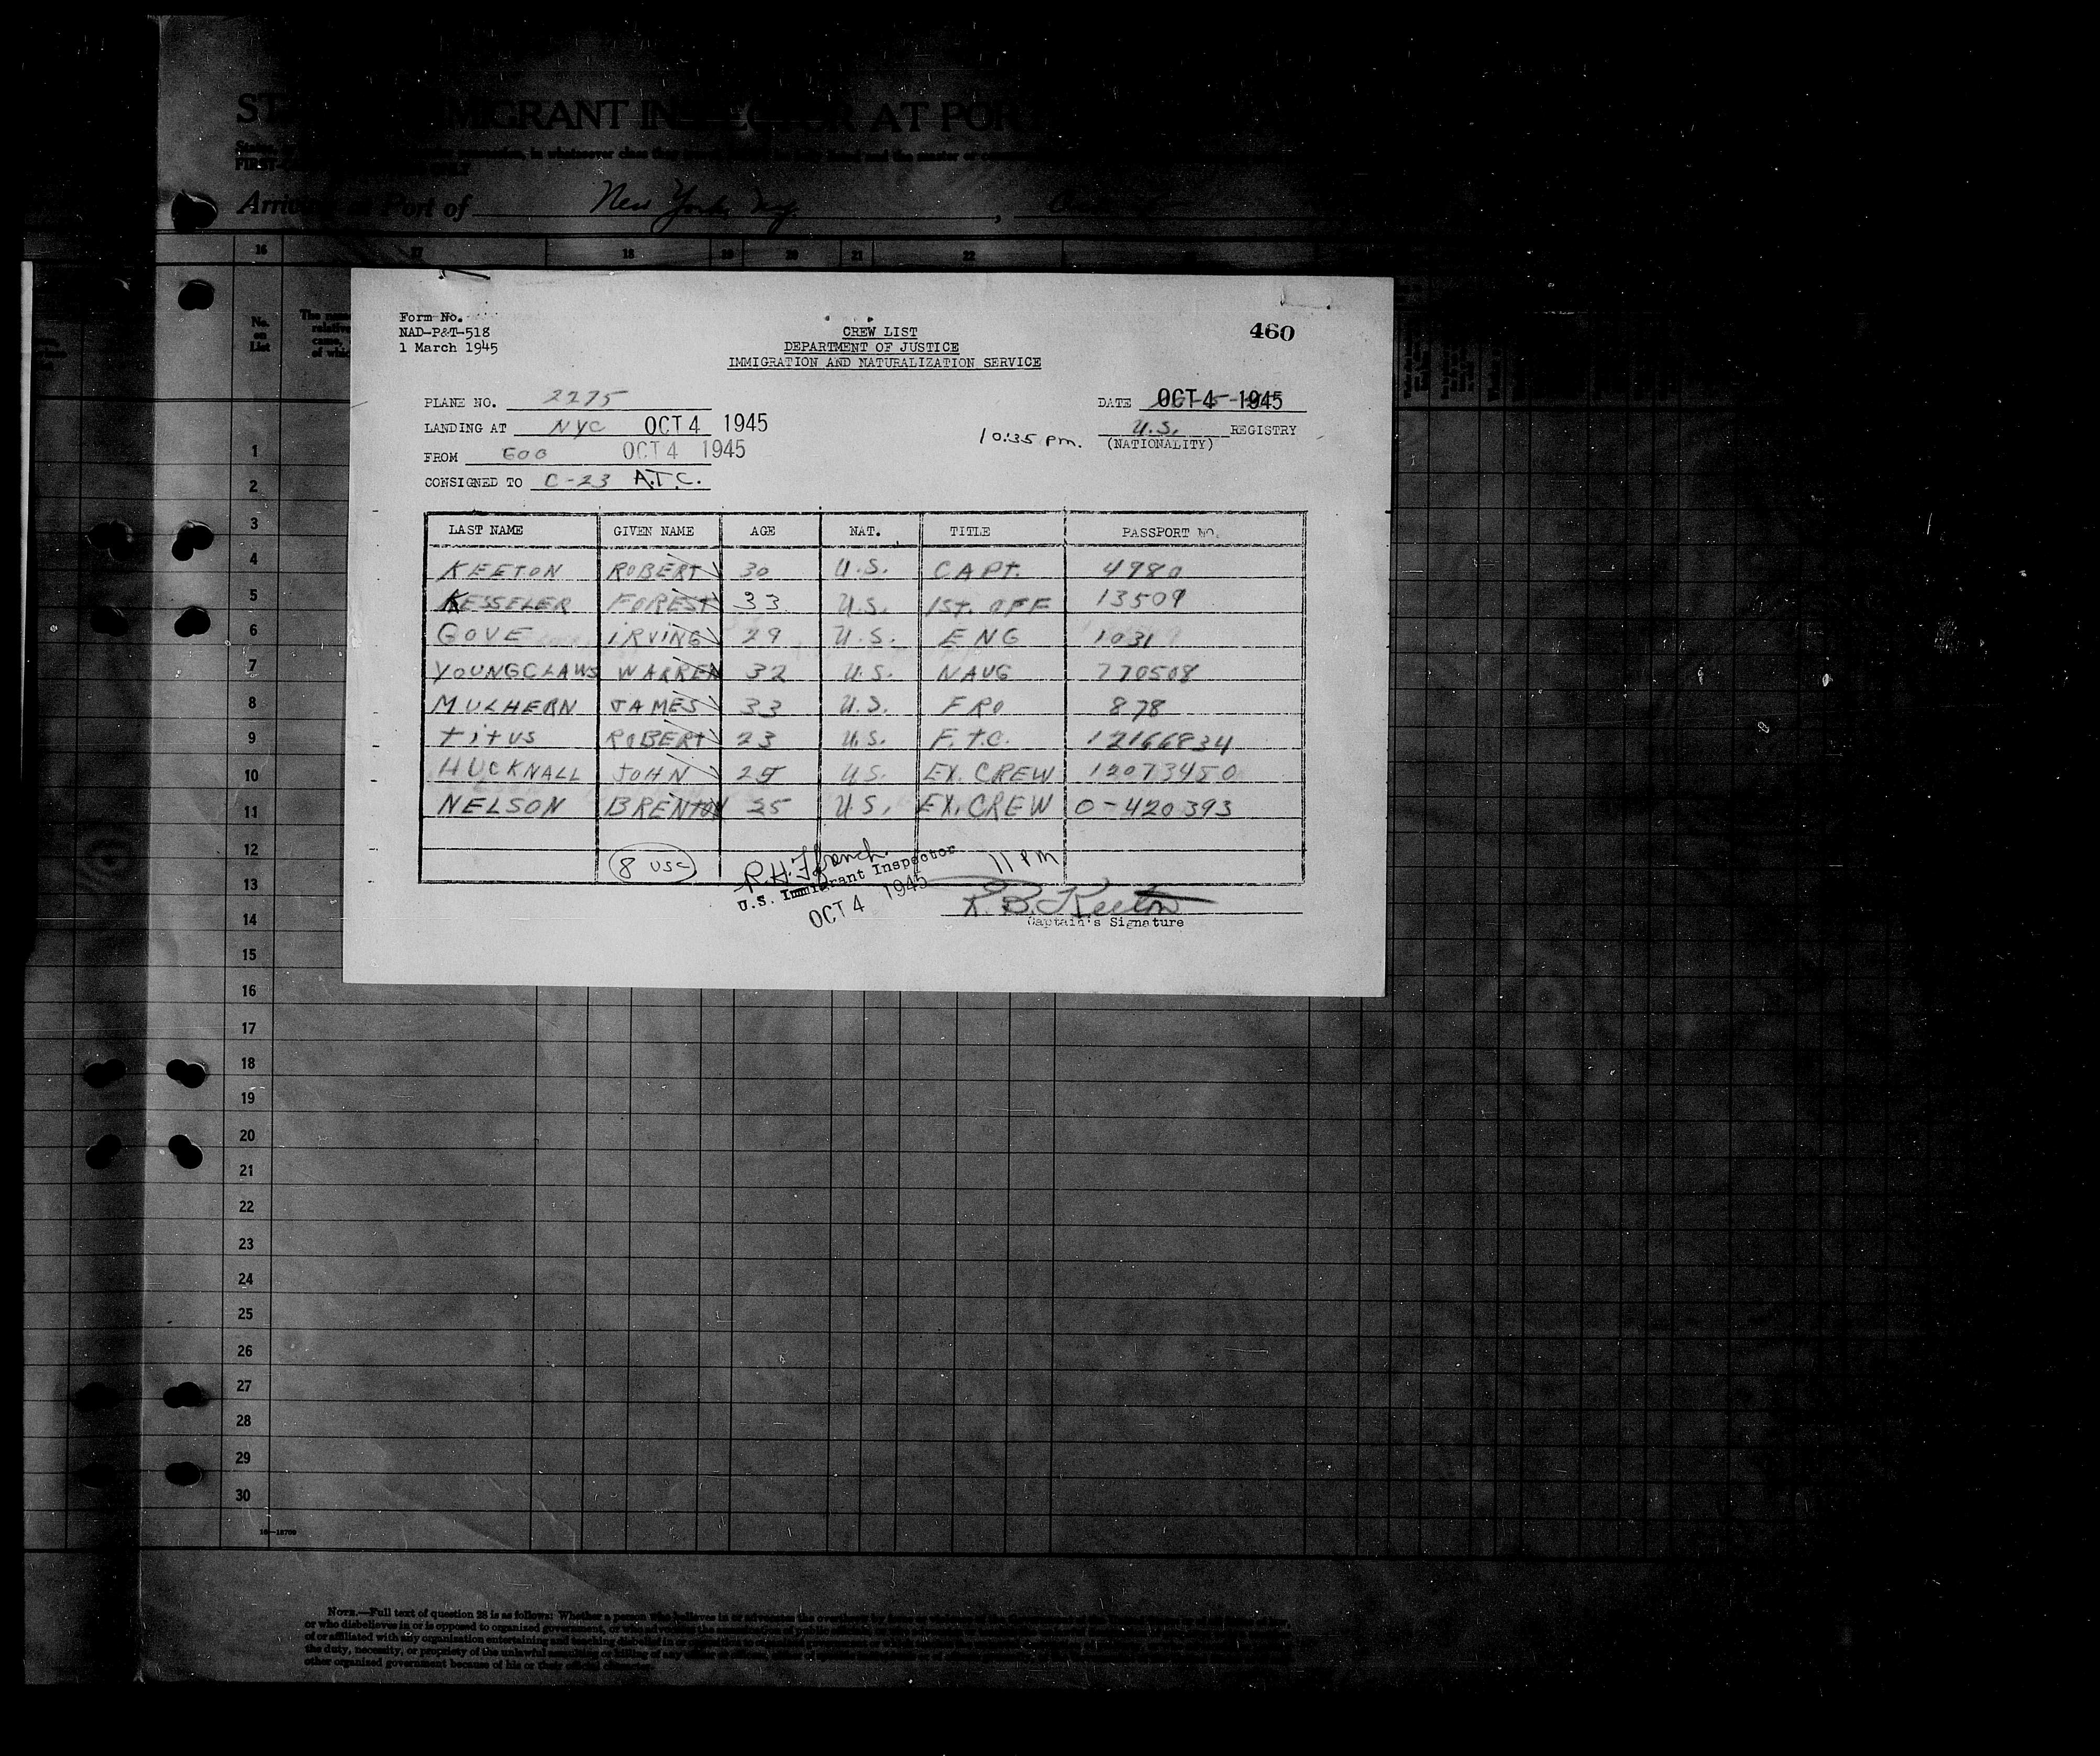 IMMIGRANT INSPECTOR AT PORT
Arriving at Port of New York, NY
16 17 18 19 20 21 22
No. on List
Form No.
NAD-P&T-518
1 March 1945
CREW LIST
DEPARTMENT OF JUSTICE
IMMIGRATION AND NATURALIZATION SERVICE
460
PLANE NO. 2275
DATE OCT 4 1945
LANDING AT NYC OCT 4 1945
10:35 pm. U.S. REGISTRY
(NATIONALITY)
FROM GOO OCT 4 1945
CONSIGNED TO C-23 A.T.C.
LAST NAME GIVEN NAME AGE NAT. TITLE PASSPORT NO.
KEETON ROBERT 30 U.S. CAPT. 4980
KESSELER FOREST 33 U.S. 1ST. OFF 13509
GOVE IRVING 29 U.S. ENG 1031
YOUNGCLAWS WARREN 32 U.S. NAUG 770508
MULHERN JAMES 33 U.S. FRO 878
titus ROBERT 23 U.S. F.T.C. 12166834
HUCKNALL JOHN 25 U.S. EX. CREW 12073450
NELSON BRENTON 25 U.S. EX. CREW 0-420393
8 USC
R.H. Ffrench
11 PM
U.S. Immigrant Inspector
OCT 4 1945
R. B. Keeton
Captain's Signature
1
2
3
4
5
6
7
8
9
10
11
12
13
14
15
16
17
18
19
20
21
22
23
24
25
26
27
28
29
30
NOTE.—Full text of question 28 is as follows: Whether a person who believes in or advocates the overthrow by force or violence of the
or who disbelieves in or is opposed to organized government, or who advocates the assassination of public
of or affiliated with any organization entertaining and teaching disbelief in or opposition to organized government
the duty, necessity, or propriety of the unlawful assaulting or killing of any officer or officers
other organized government because of his or their official character